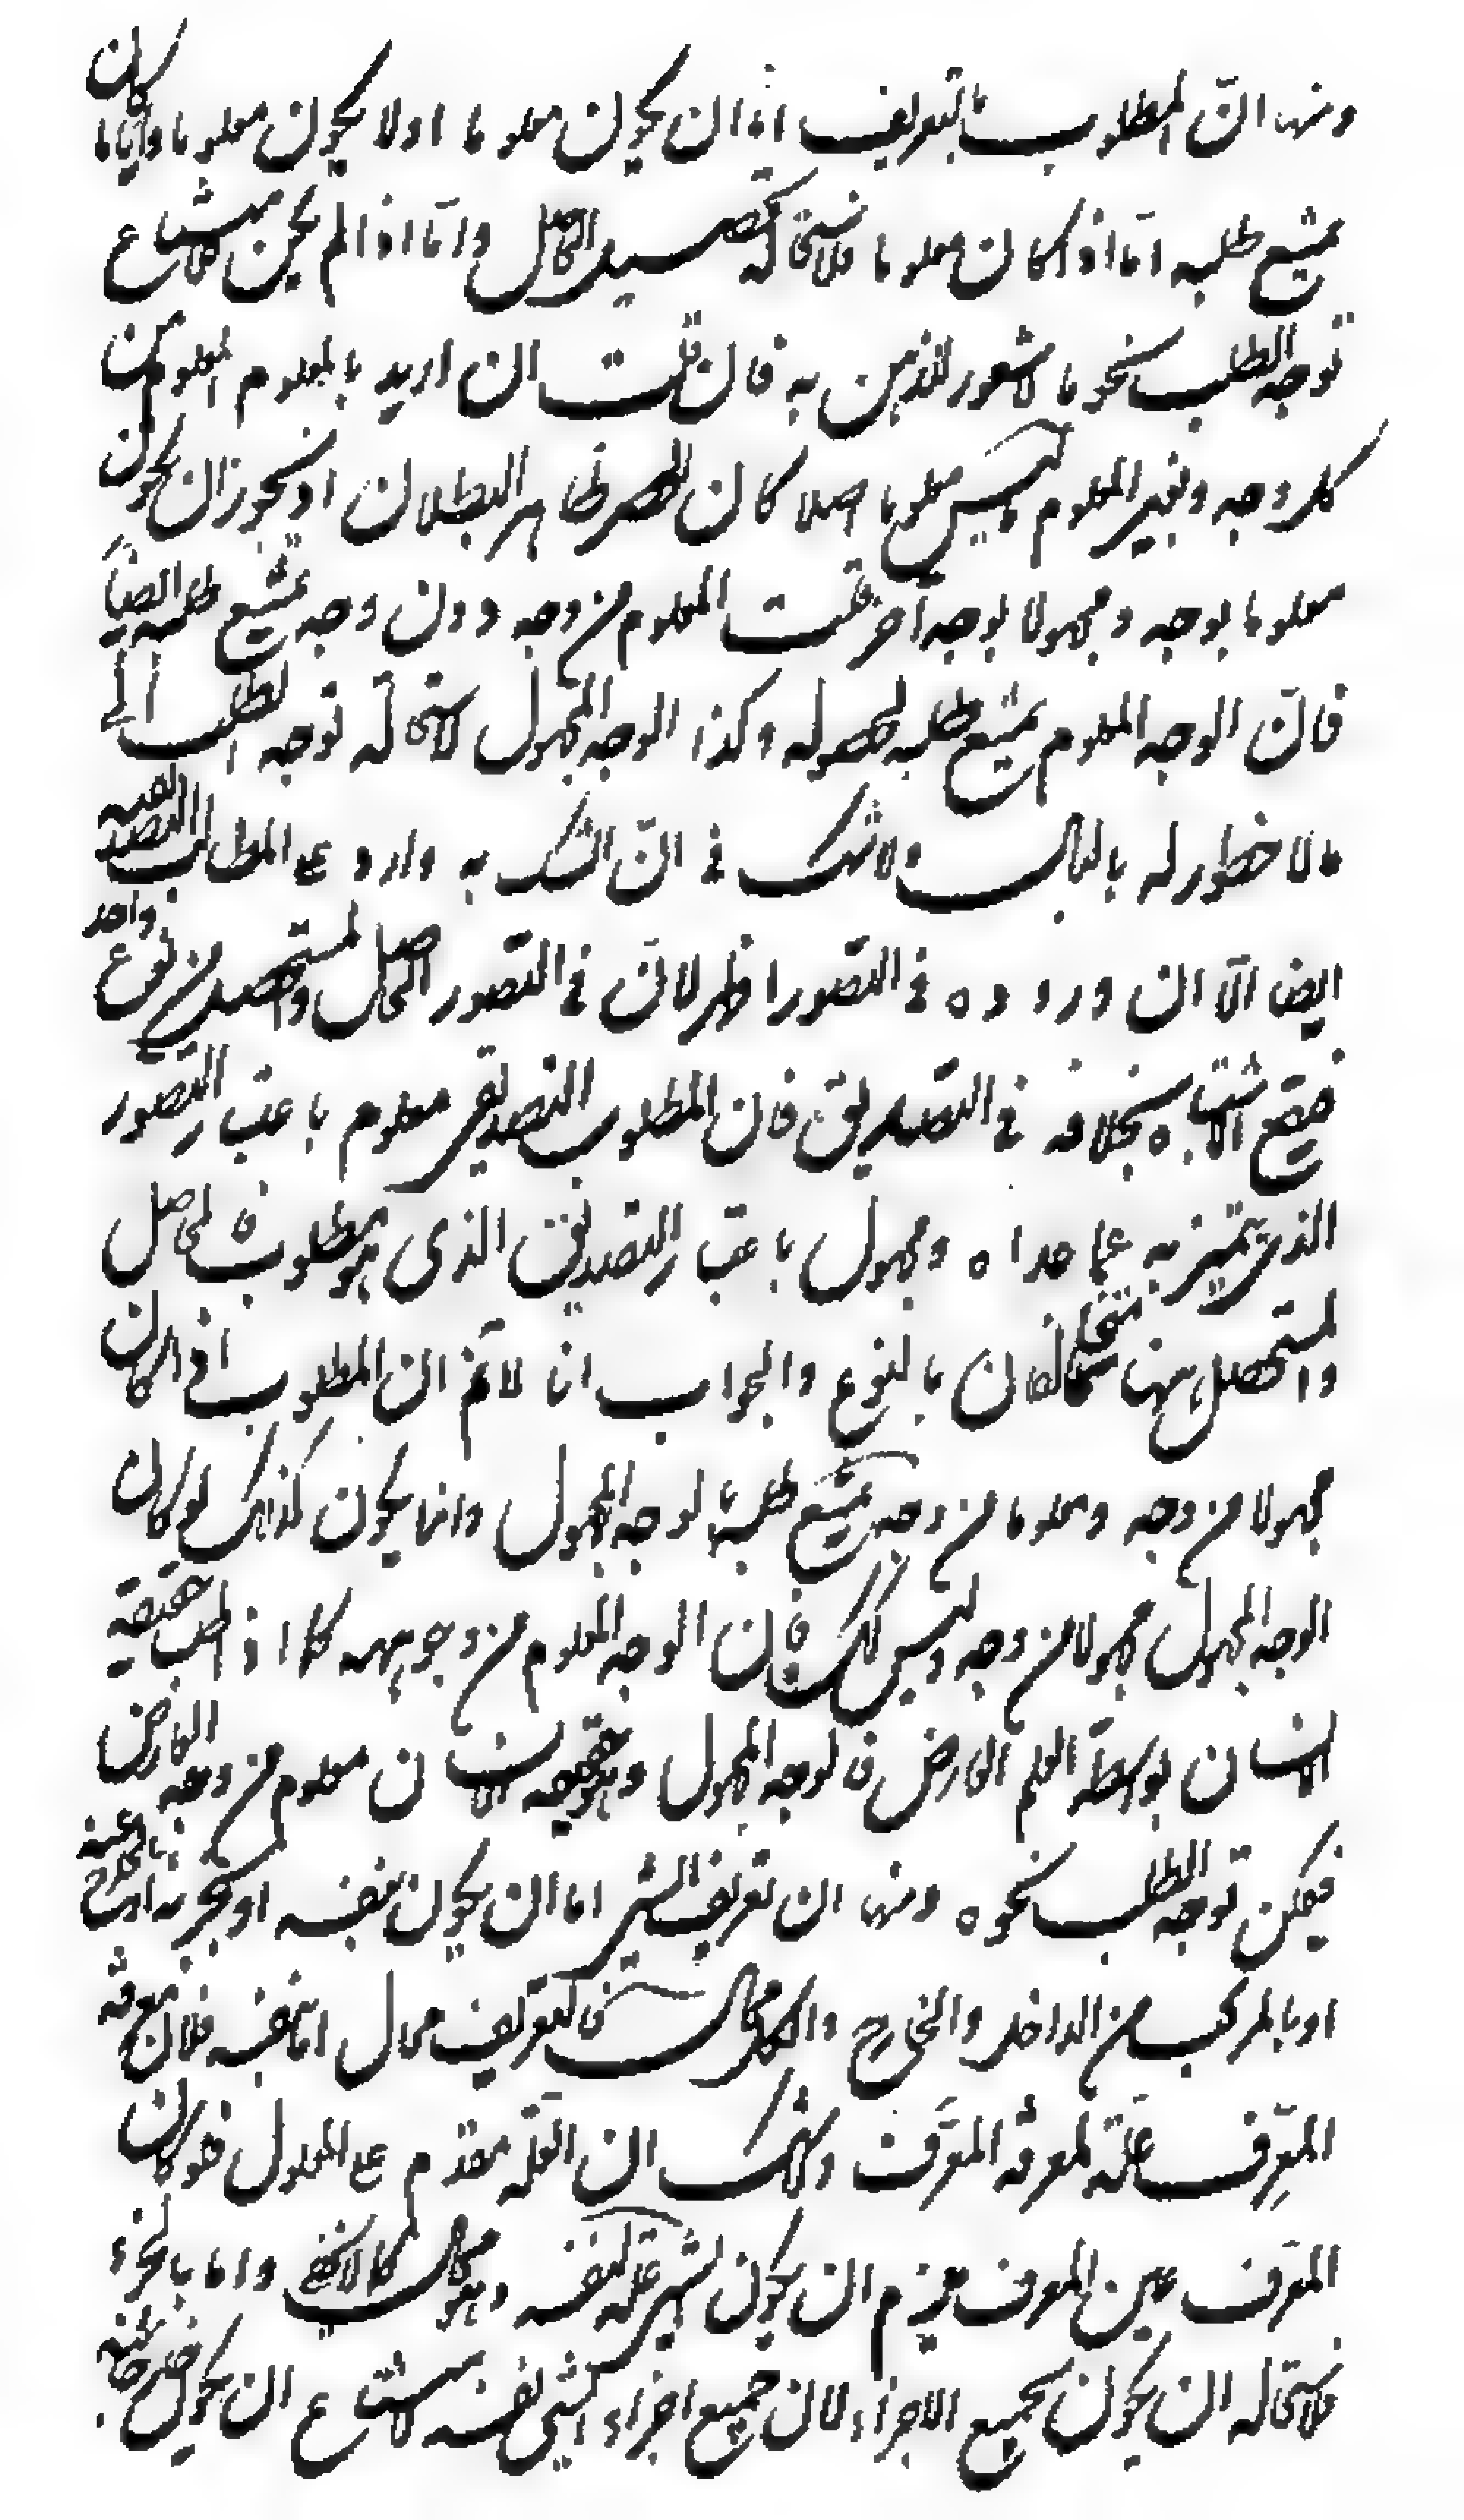 ومنها ان المطلوب بالتعريف اما ان يكون معلوما او لا يكون معلوما وايا ما كان
يمتنع طلبه اما اذا كان معلوما فلاستحالة تحصيل الحاصل واما اذا لم يكن فلامتناع
توجه الطلب نحو ما لا شعور للذهن به فان قلت ان اريد بالمعلوم المعلوم من
كل وجه وبغير المعلوم ما ليس معلوما اصلا كان الحصر ظاهر البطلان اذ يجوز ان يكون
معلوما بوجه ومجهولا بوجه آخر قلت المعلوم من وجه دون وجه يمتنع طلبه ايضا
فان الوجه المعلوم يمتنع طلبه لحصوله وكذا الوجه المجهول لاستحالة توجه الطلب الى
ما لا خطور له بالبال ولا شك في ان الشك به وارد على المطالب التصديقية
ايضا الا ان وروده في التصور اظهر لان في التصور الحاصل والمستحصل من نوع واحد
فيقع الاشتباه بخلافه في التصديق فان المطلوب التصديقي معلوم باعتبار التصور
الذي يتميز به عما عداه ومجهول باعتبار التصديق الذي هو مطلوب فالحاصل
والمستحصل منها متخالفان بالنوع والجواب انا لا نم ان المطلوب اذا كان
مجهولا من وجه ومعلوما من وجه يمتنع طلبه بالوجه المجهول وانما يكون كذلك لو كان
الوجه المجهول مجهولا من وجه وليس كذلك فان الوجه المعلوم من وجوهه كما اذا طلب حقيقة
الانسان بواسطة العلم العارض فالوجه المجهول وهو حقيقة الانسان معلوم من وجه العارض
فيمكن توجه الطلب نحوه ومنها ان تعريف الشئ اما ان يكون بنفسه او بجزئه او بالخارج عنه
او بالمركب من الداخل والخارج والكل محال فالتعريف محال اما بنفسه فلان معرفة
المعرِّف علة لمعرفة المعرَّف ولا شك ان العلة مقدم على المعلول فلو كان
المعرف عين المعرف يلزم ان يكون الشئ علة لنفسه وهو محال كما لا يخفى واما بالجزء
فلاستحالة ان يكون بجميع الاجزاء لان جميع اجزاء الشئ نفسه لامتناع ان يكون خارجا عنه